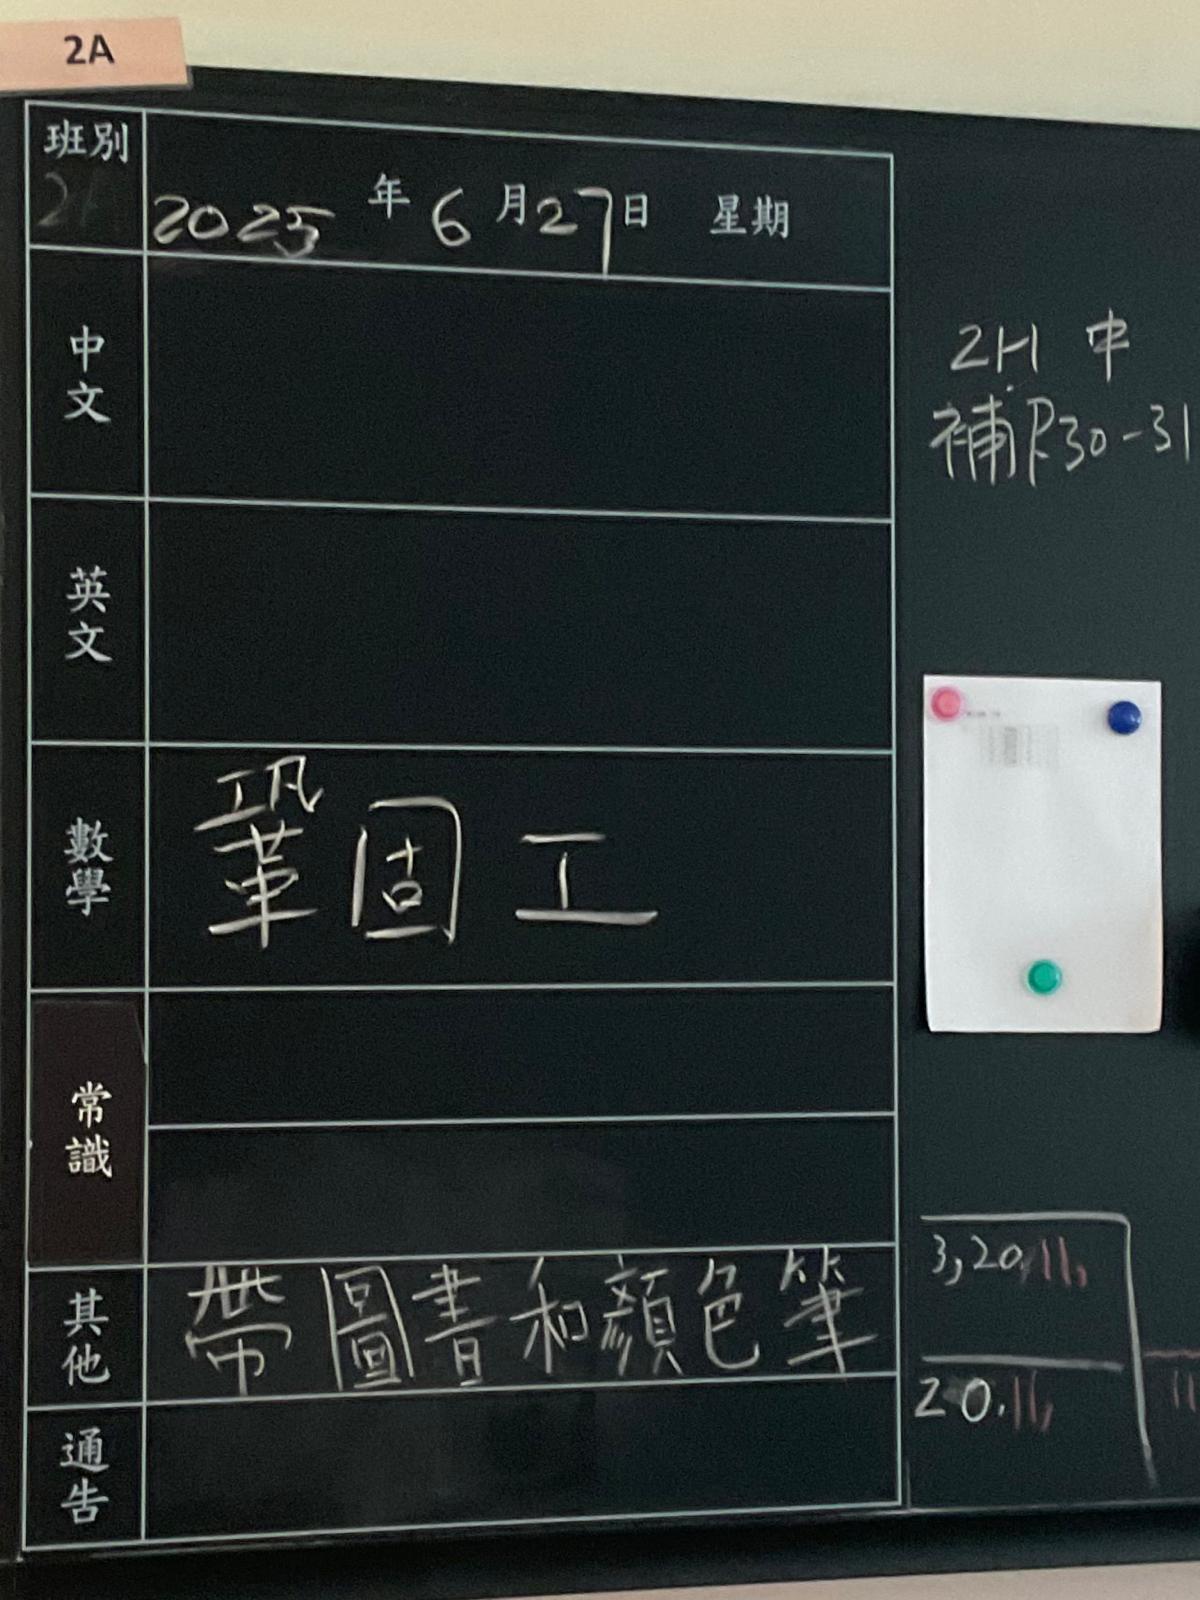 2A
班別
2025 年 6 月 27 日 星期
中文
英文
數學 鞏固工
常識
其他 帶圖書和顏色筆
通告
2H 中
補P.30-31
3,20,11,
20.11,
11